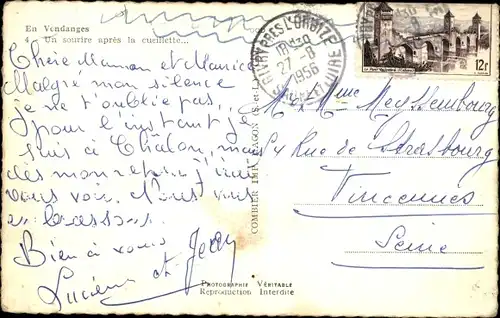 En Vendanges
Un sourire après la cueillette...
Chère Maman et Maurice
Malgré mon silence
je ne t'oublie pas,
pour l'instant je
suis à Châlon, mais
dès mon retour j'irai
vous voir. Nous vous
embrassons.
Bien à vous
Lucienne et Jean
COMBIER IMP. MACON
PHOTOGRAPHIE VÉRITABLE
Reproduction Interdite
27-8
1956
12f
M. Mme Meyssembourg
54 Rue de Strasbourg
Vincennes
Seine